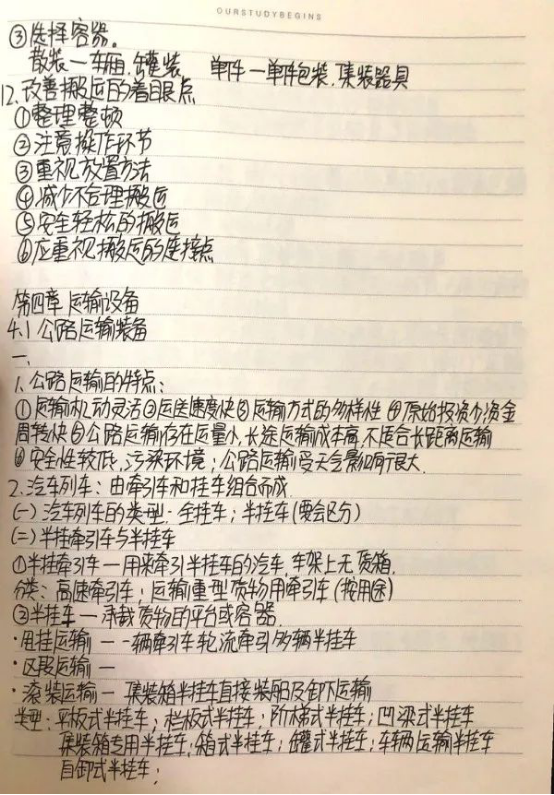 OURSTUDYBEGINS
③选择容器。
散装—车厢、罐装 单件—单件包装、集装器具
12.改善搬运的着眼点
①整理整顿
②注意操作环节
③重视放置方法
④减少不合理搬运
⑤安全轻松的搬运
⑥应重视搬运的连接点
第四章 运输设备
4.1 公路运输装备
一、
1.公路运输的特点：
①运输机动灵活②运送速度快③运输方式的多样性④原始投资少资金
周转快⑤公路运输存在运量小,长途运输成本高,不适合长距离运输
⑥安全性较低,污染环境；公路运输受天气影响很大.
2.汽车列车：由牵引车和挂车组合而成
(一)汽车列车的类型：全挂车；半挂车(要会区分)
(二)半挂牵引车与半挂车
①半挂牵引车—用来牵引半挂车的汽车,车架上无货箱.
分类：高速牵引车；运输重型货物用牵引车(按用途)
②半挂车—承载货物的平台或容器.
·甩挂运输—一辆牵引车轮流牵引多辆半挂车
·区段运输—
·滚装运输—集装箱半挂车直接装船及卸下运输
类型：平板式半挂车；栏板式半挂车；阶梯式半挂车；凹梁式半挂车
集装箱专用半挂车；箱式半挂车；罐式半挂车；车辆运输半挂车
自卸式半挂车；